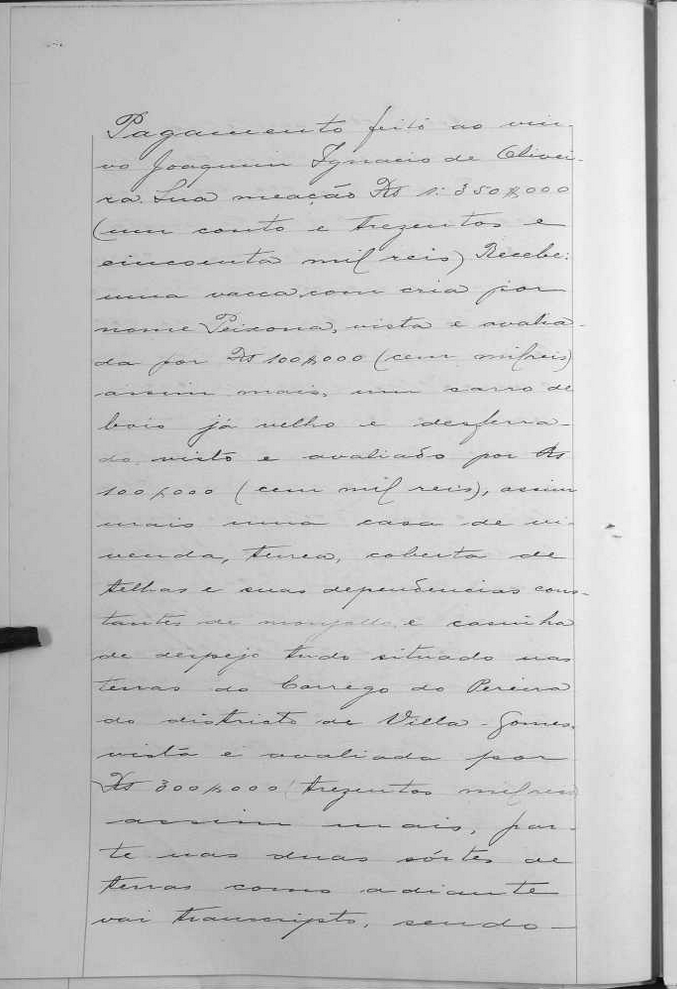 Pagamento feito ao viu-
vo Joaquim Ignacio de Olivei-
ra. Sua meação Rs 1:350$000
(um conto e trezentos e
cincoenta mil reis) Recebe:
uma vacca, com cria por
nome Peixona, vista e avalia-
da por Rs 100$000 (cem mil reis)
assim mais, um carro de
bois já velho e desferra-
do, visto e avaliado por Rs
100$000 (cem mil reis), assim
mais uma casa de vi-
venda, terrea, coberta de
telhas e suas dependencias cons-
tantes de monjollo, e casinha
de despejo tudo situado nas
terras do Corrego do Pereira
do districto de Villa-Gomes,
vista e avaliada por
Rs 300$000 (trezentos mil reis)
assim mais, par-
te nas duas sórtes de
terras como adiante
vai transcripto, sendo-